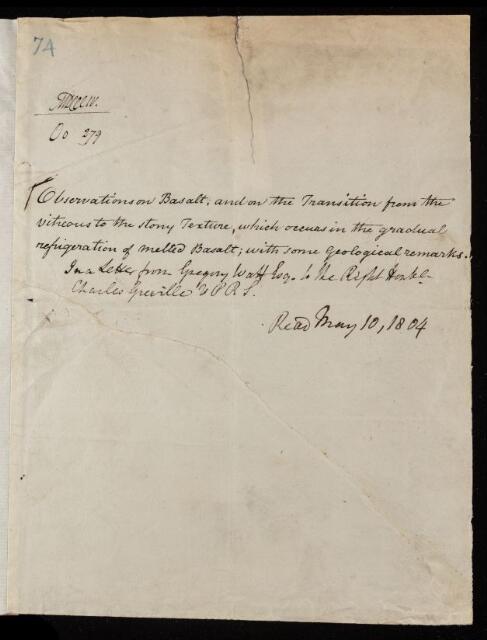 74
MDCCCIV.
Oo 279
Observations on Basalt, and on the Transition from the
vitreous to the stony Texture, which occurs in the gradual
refrigeration of melted Basalt; with some Geological remarks.
In a Letter from Gregory Watt Esq. to the Right Honble.
Charles Greville V.P.R.S.
Read May 10, 1804